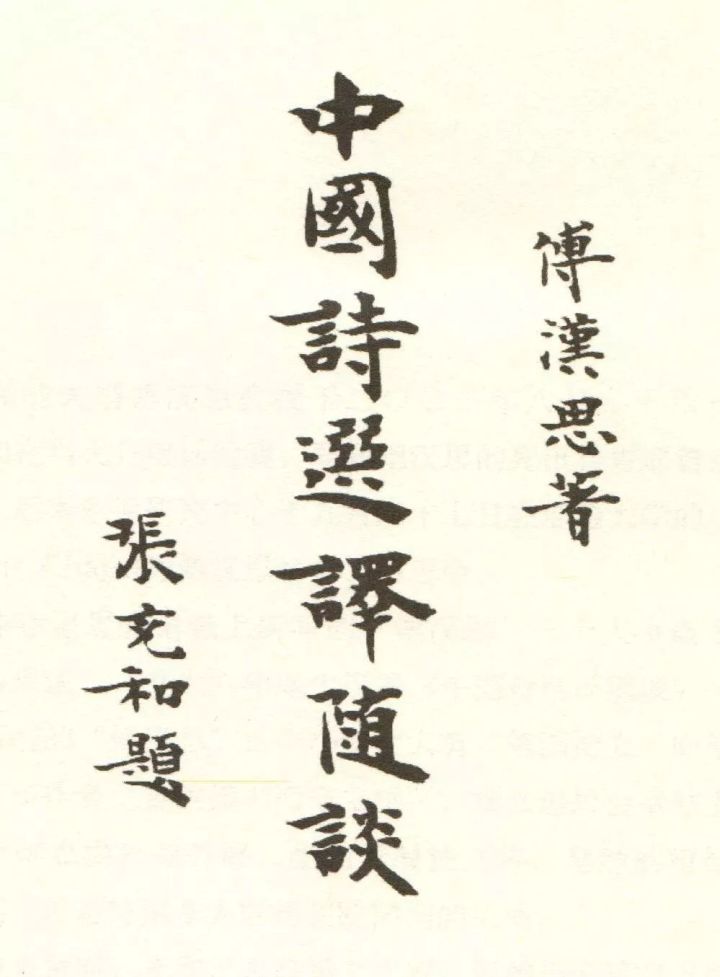 傅漢思著
中國詩選譯隨談
張充和題